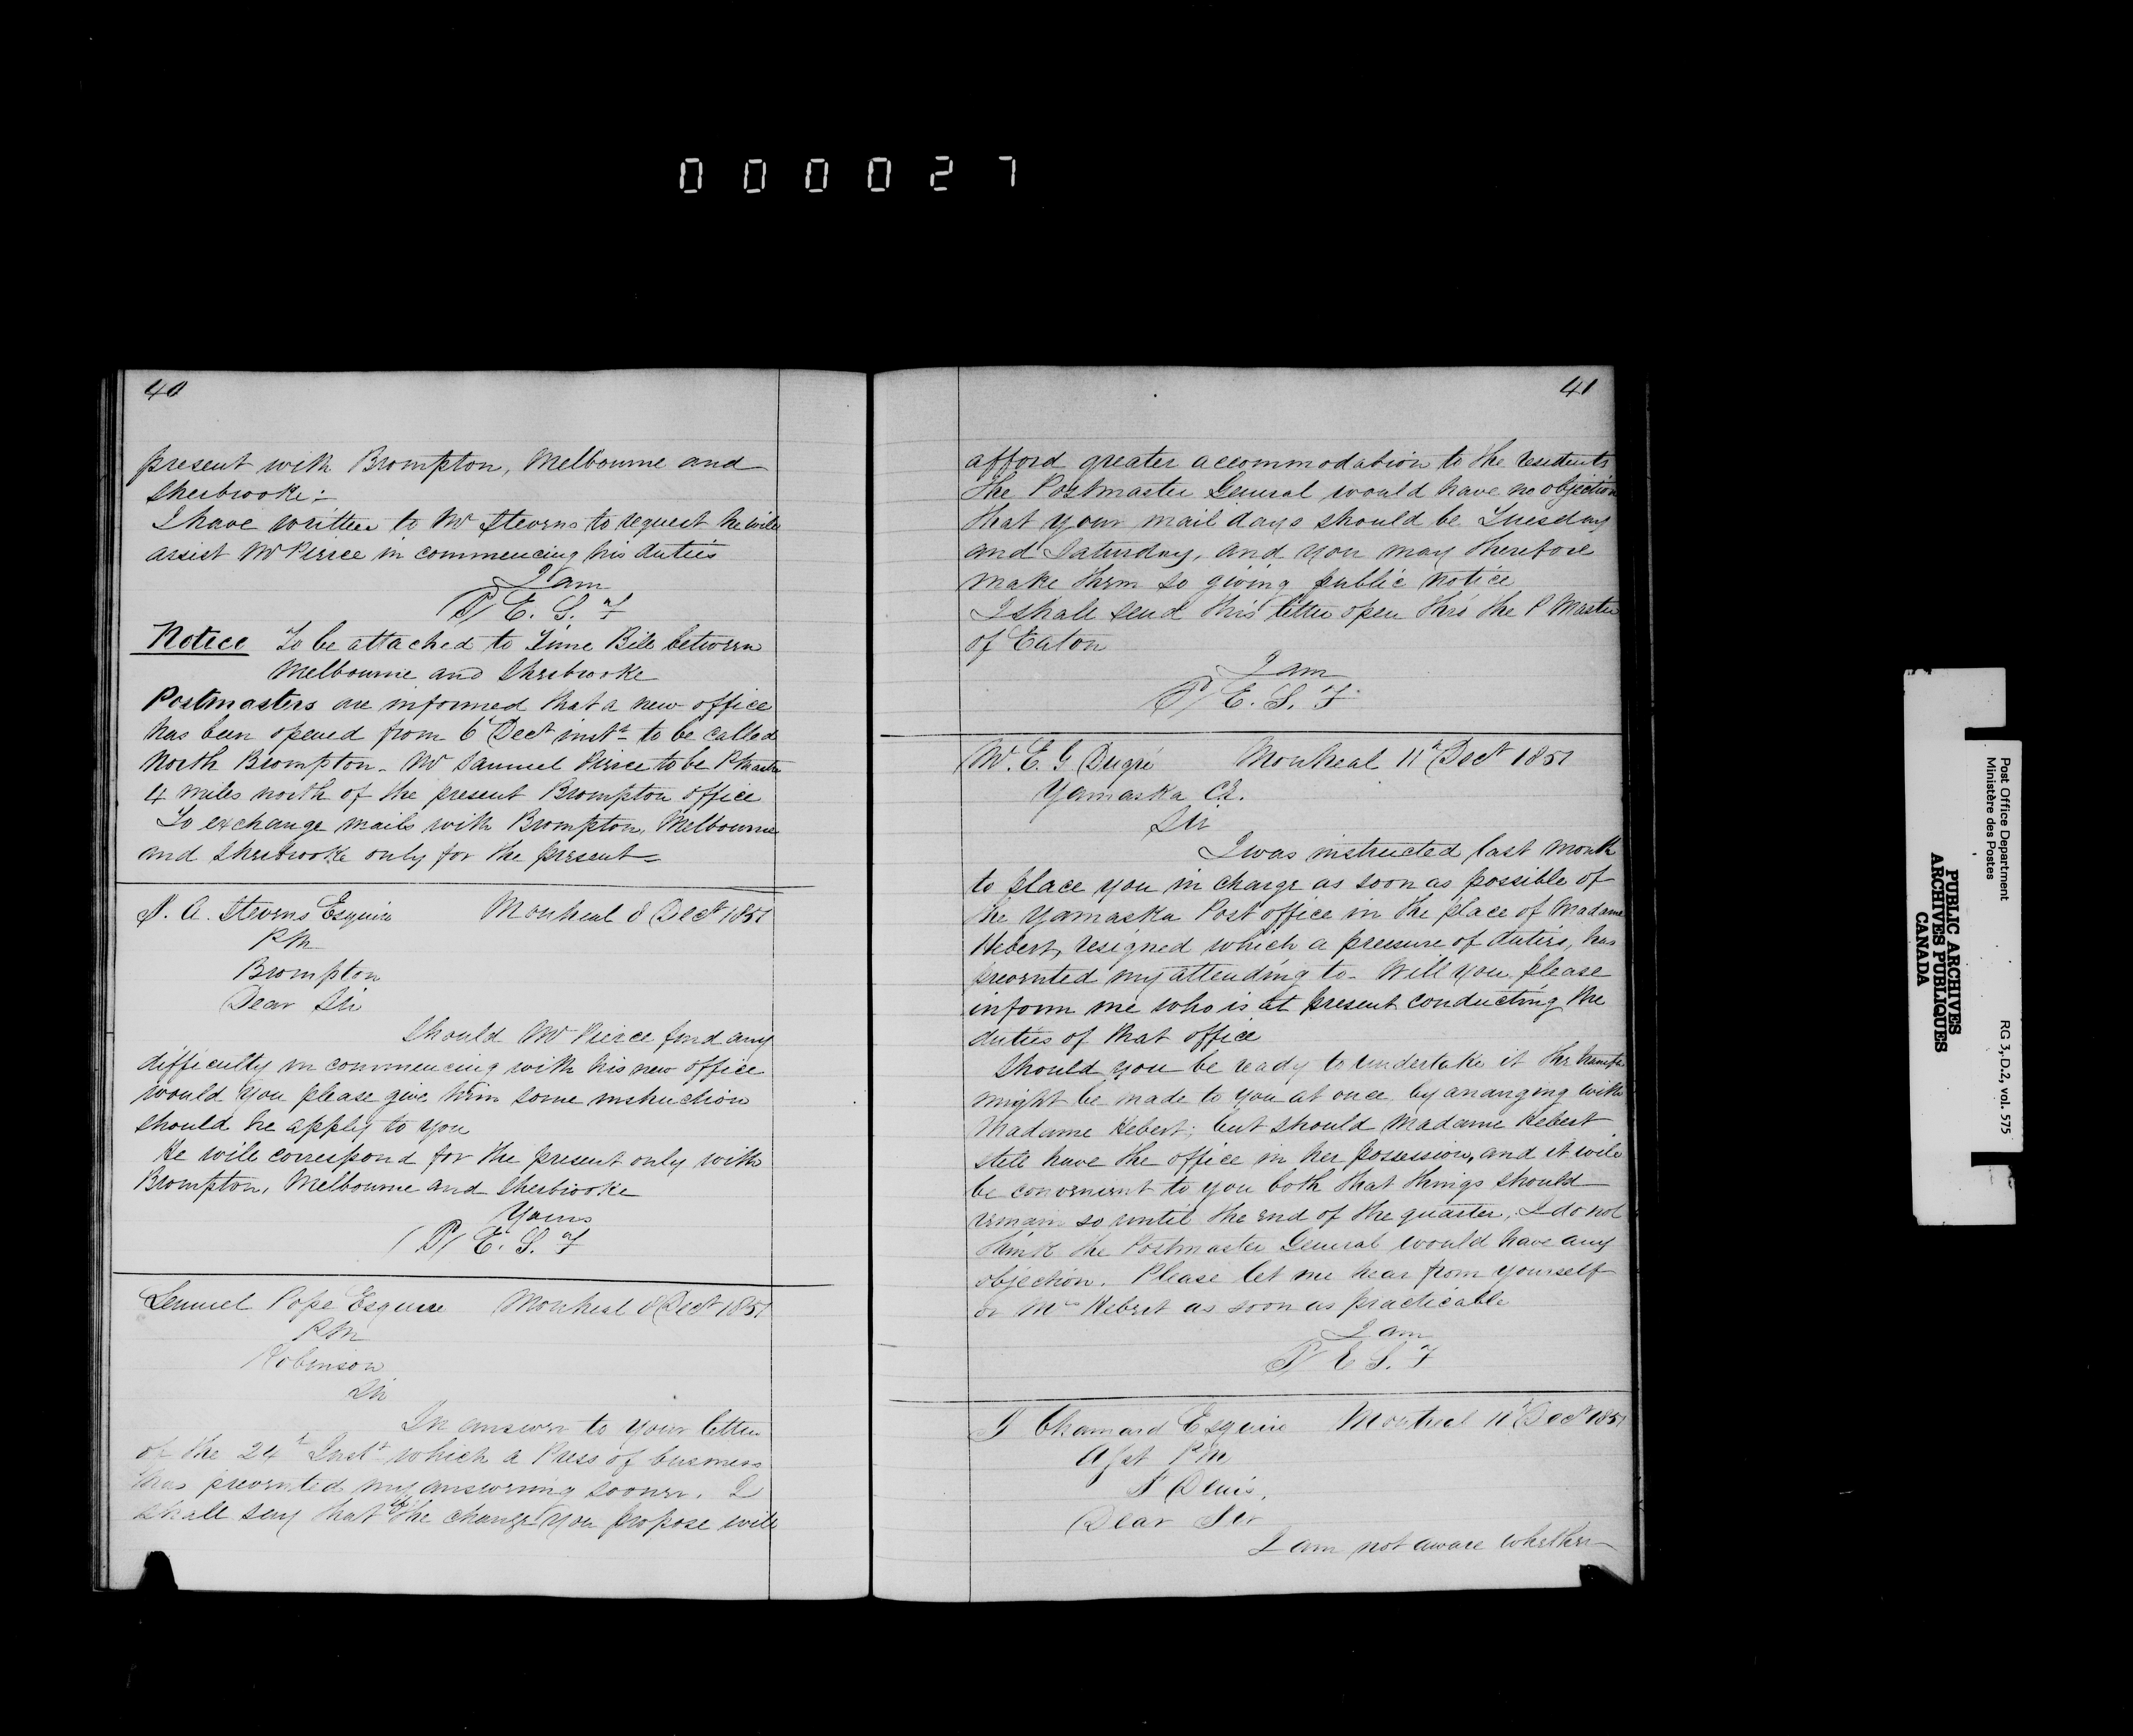 000027
40
present with Brompton, Melbourne and
Sherbrooke:-
I have written to Mr Stevens to request he will
assist Mr Pierce in commencing his duties
I am
E. S. F
Notice To be attached to Time Bill between
Melbourne and Sherbrooke
Postmasters are informed that a new office
has been opened from 6 Decr instt to be called
North Brompton. Mr Samuel Pierce to be PMaster
4 miles north of the present Brompton office
To exchange mails with Brompton, Melbourne
and Sherbrooke only for the present
S. A. Stevens Esquire Montreal 8 Decr 1851
PM
Brompton
Dear Sir
Should Mr Pierce find any
difficulty in commencing with his new office
would you please give him some instruction
should he apply to you
He will correspond for the present only with
Brompton, Melbourne and Sherbrooke
Yours
E. S. F
Lemuel Pope Esquire Montreal 8 Decr 1851
PM
Robinson
Sir
In answer to your letter
of the 24th Inst which a Press of business
has prevented my answering sooner. I
shall say that if the change you propose will
41
afford greater accommodation to the residents
the Postmaster General would have no objection
that your mail days should be Tuesday
and Saturday, and you may therefore
make them so giving public notice
I shall send this letter open thro the P Master
of Eaton
I am
E. S. F.
Mr. E. G Dugré Montreal 11th Decr 1851
Yamaska CE.
Sir
I was instructed last month
to place you in charge as soon as possible of
the Yamaska Post office in the place of Madame
Hebert, resigned which a pressure of duties, has
prevented my attending to. Will you please
inform me who is at present conducting the
duties of that office
Should you be ready to undertake it the transfer
might be made to you at once by arranging with
Madame Hebert; but should Madame Hebert
still have the office in her possession, and it will
be convenient to you both that things should
remain so until the end of the quarter, I do not
think the Postmaster General would have any
objection. Please let me hear from yourself
or Mrs Hebert as soon as practicable
I am
E S. F
Chamard Esquire Montreal 11 Decr 1851
Asst PM
St Denis.
Dear Sir
I am not aware whether
Post Office Department
Ministère des Postes
RG 3, D.2, vol. 575
PUBLIC ARCHIVES
ARCHIVES PUBLIQUES
CANADA